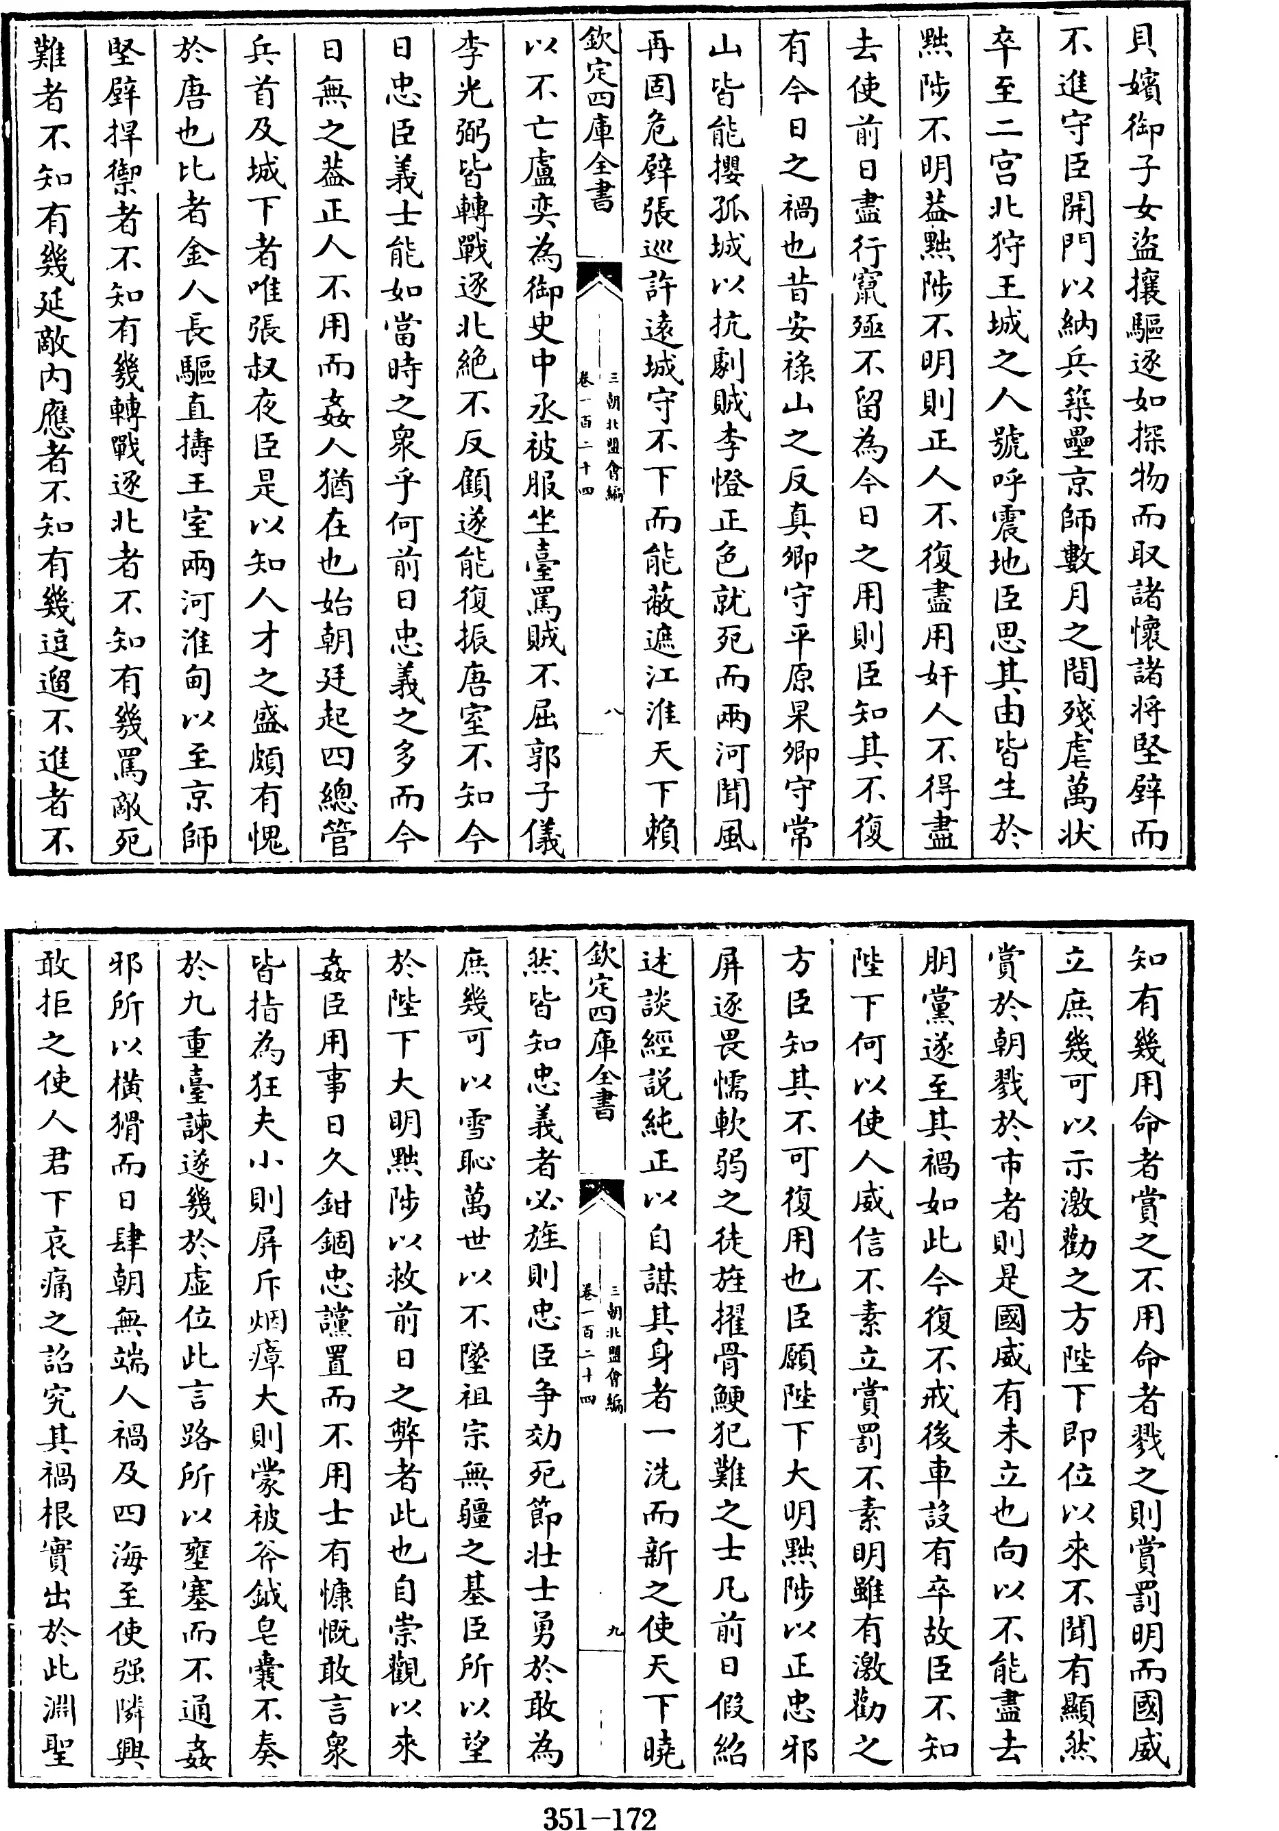 貝嬪御子女盜攘驅逐如探物而取諸懷諸將堅壁而
不進守臣開門以納兵築壘京師數月之間殘虐萬狀
卒至二宫北狩王城之人號呼震地臣思其由皆生於
黜陟不明葢黜陟不明則正人不復盡用奸人不得盡
去使前日盡行竄殛不留為今日之用則臣知其不復
有今日之禍也昔安祿山之反真卿守平原杲卿守常
山皆能攖孤城以抗劇賊李憕正色就死而兩河聞風
再固危壁張巡許遠城守不下而能蔽遮江淮天下賴
欽定四庫全書
三朝北盟會編
卷一百二十四
八
以不亡盧奕為御史中丞被服坐臺罵賊不屈郭子儀
李光弼皆轉戰逐北絶不反顧遂能復振唐室不知今
日忠臣義士能如當時之衆乎何前日忠義之多而今
日無之葢正人不用而姦人猶在也始朝廷起四總管
兵首及城下者唯張叔夜臣是以知人才之盛頗有愧
於唐也比者金人長驅直擣王室兩河淮甸以至京師
堅壁捍禦者不知有幾轉戰逐北者不知有幾罵敵死
難者不知有幾延敵内應者不知有幾逗遛不進者不
知有幾用命者賞之不用命者戮之則賞罰明而國威
立庶幾可以示激勸之方陛下即位以來不聞有顯然
賞於朝戮於市者則是國威有未立也向以不能盡去
朋黨遂至其禍如此今復不戒後車設有卒故臣不知
陛下何以使人威信不素立賞罰不素明雖有激勸之
方臣知其不可復用也臣願陛下大明黜陟以正忠邪
屏逐畏懦軟弱之徒旌擢骨鯁犯難之士凡前日假紹
述談經説純正以自謀其身者一洗而新之使天下曉
欽定四庫全書
三朝北盟會編
卷一百二十四
九
然皆知忠義者必旌則忠臣争効死節壮士勇於敢為
庶幾可以雪恥萬世以不墜祖宗無疆之基臣所以望
於陛下大明黜陟以救前日之弊者此也自崇觀以來
姦臣用事日久鉗錮忠讜置而不用士有慷慨敢言衆
皆指為狂夫小則屏斥烟瘴大則蒙被斧鉞皂囊不奏
於九重臺諫遂幾於虚位此言路所以壅塞而不通姦
邪所以橫猾而日肆朝無端人禍及四海至使强隣興
敢拒之使人君下哀痛之詔究其禍根實出於此淵聖
351-172